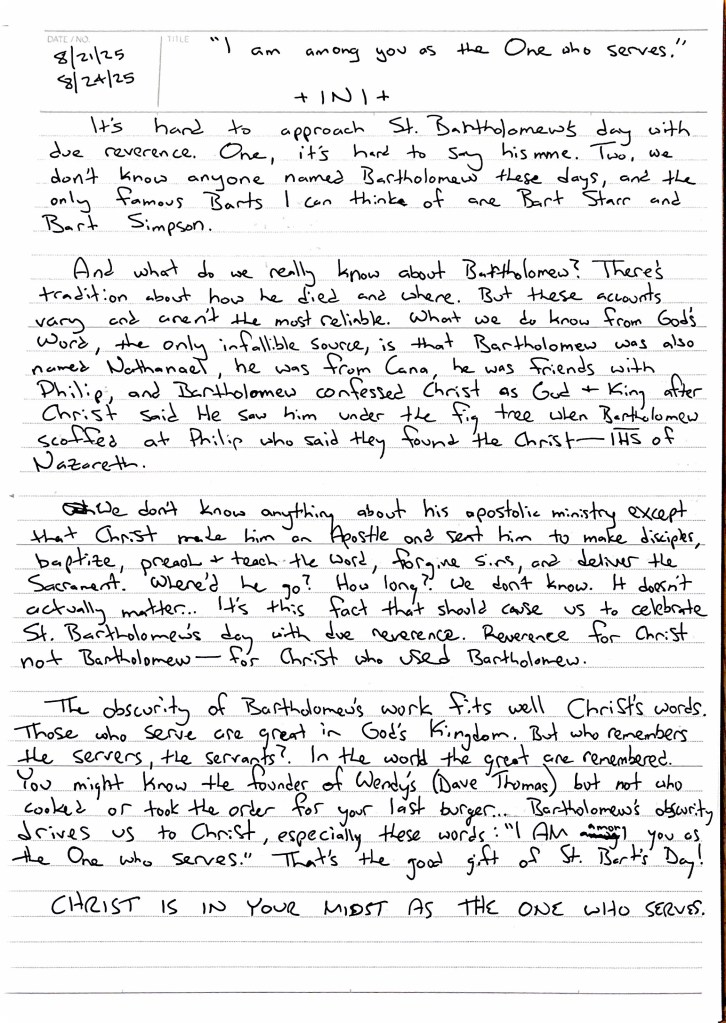 DATE / NO.
8/21/25
8/24/25
TITLE
"I am among you as the One who serves."
+ INI +
It's hard to approach St. Bartholomew's day with
due reverence. One, it's hard to say his mme. Two, we
don't know anyone named Bartholomew these days, and the
only famous Barts I can thinke of are Bart Starr and
Bart Simpson.
And what do we really know about Bartholomew? There's
tradition about how he died and where. But these accounts
vary and aren't the most reliable. What we do know from God's
Word, the only infallible source, is that Bartholomew was also
named Nathanael, he was from Cana, he was friends with
Philip, and Bartholomew confessed Christ as God + King after
Christ said He saw him under the fig tree when Bartholomew
scoffed at Philip who said they found the Christ—IHS of
Nazareth.
We don't know anything about his apostolic ministry except
that Christ made him an Apostle and sent him to make disciples,
baptize, preach + teach the Word, forgive sins, and deliver the
Sacrament. Where'd he go? How long? We don't know. It doesn't
actually matter... It's this fact that should cause us to celebrate
St. Bartholomew's day with due reverence. Reverence for Christ
not Bartholomew—for Christ who used Bartholomew.
The obscurity of Bartholomew's work fits well Christ's words.
Those who serve are great in God's Kingdom. But who remembers
the servers, the servants? In the world the great are remembered.
You might know the founder of Wendy's (Dave Thomas) but not who
cooked or took the order for your last burger... Bartholomew's obscurity
drives us to Christ, especially these words: "I AM among you as
the One who serves." That's the good gift of St. Bart's Day!
CHRIST IS IN YOUR MIDST AS THE ONE WHO SERVES.